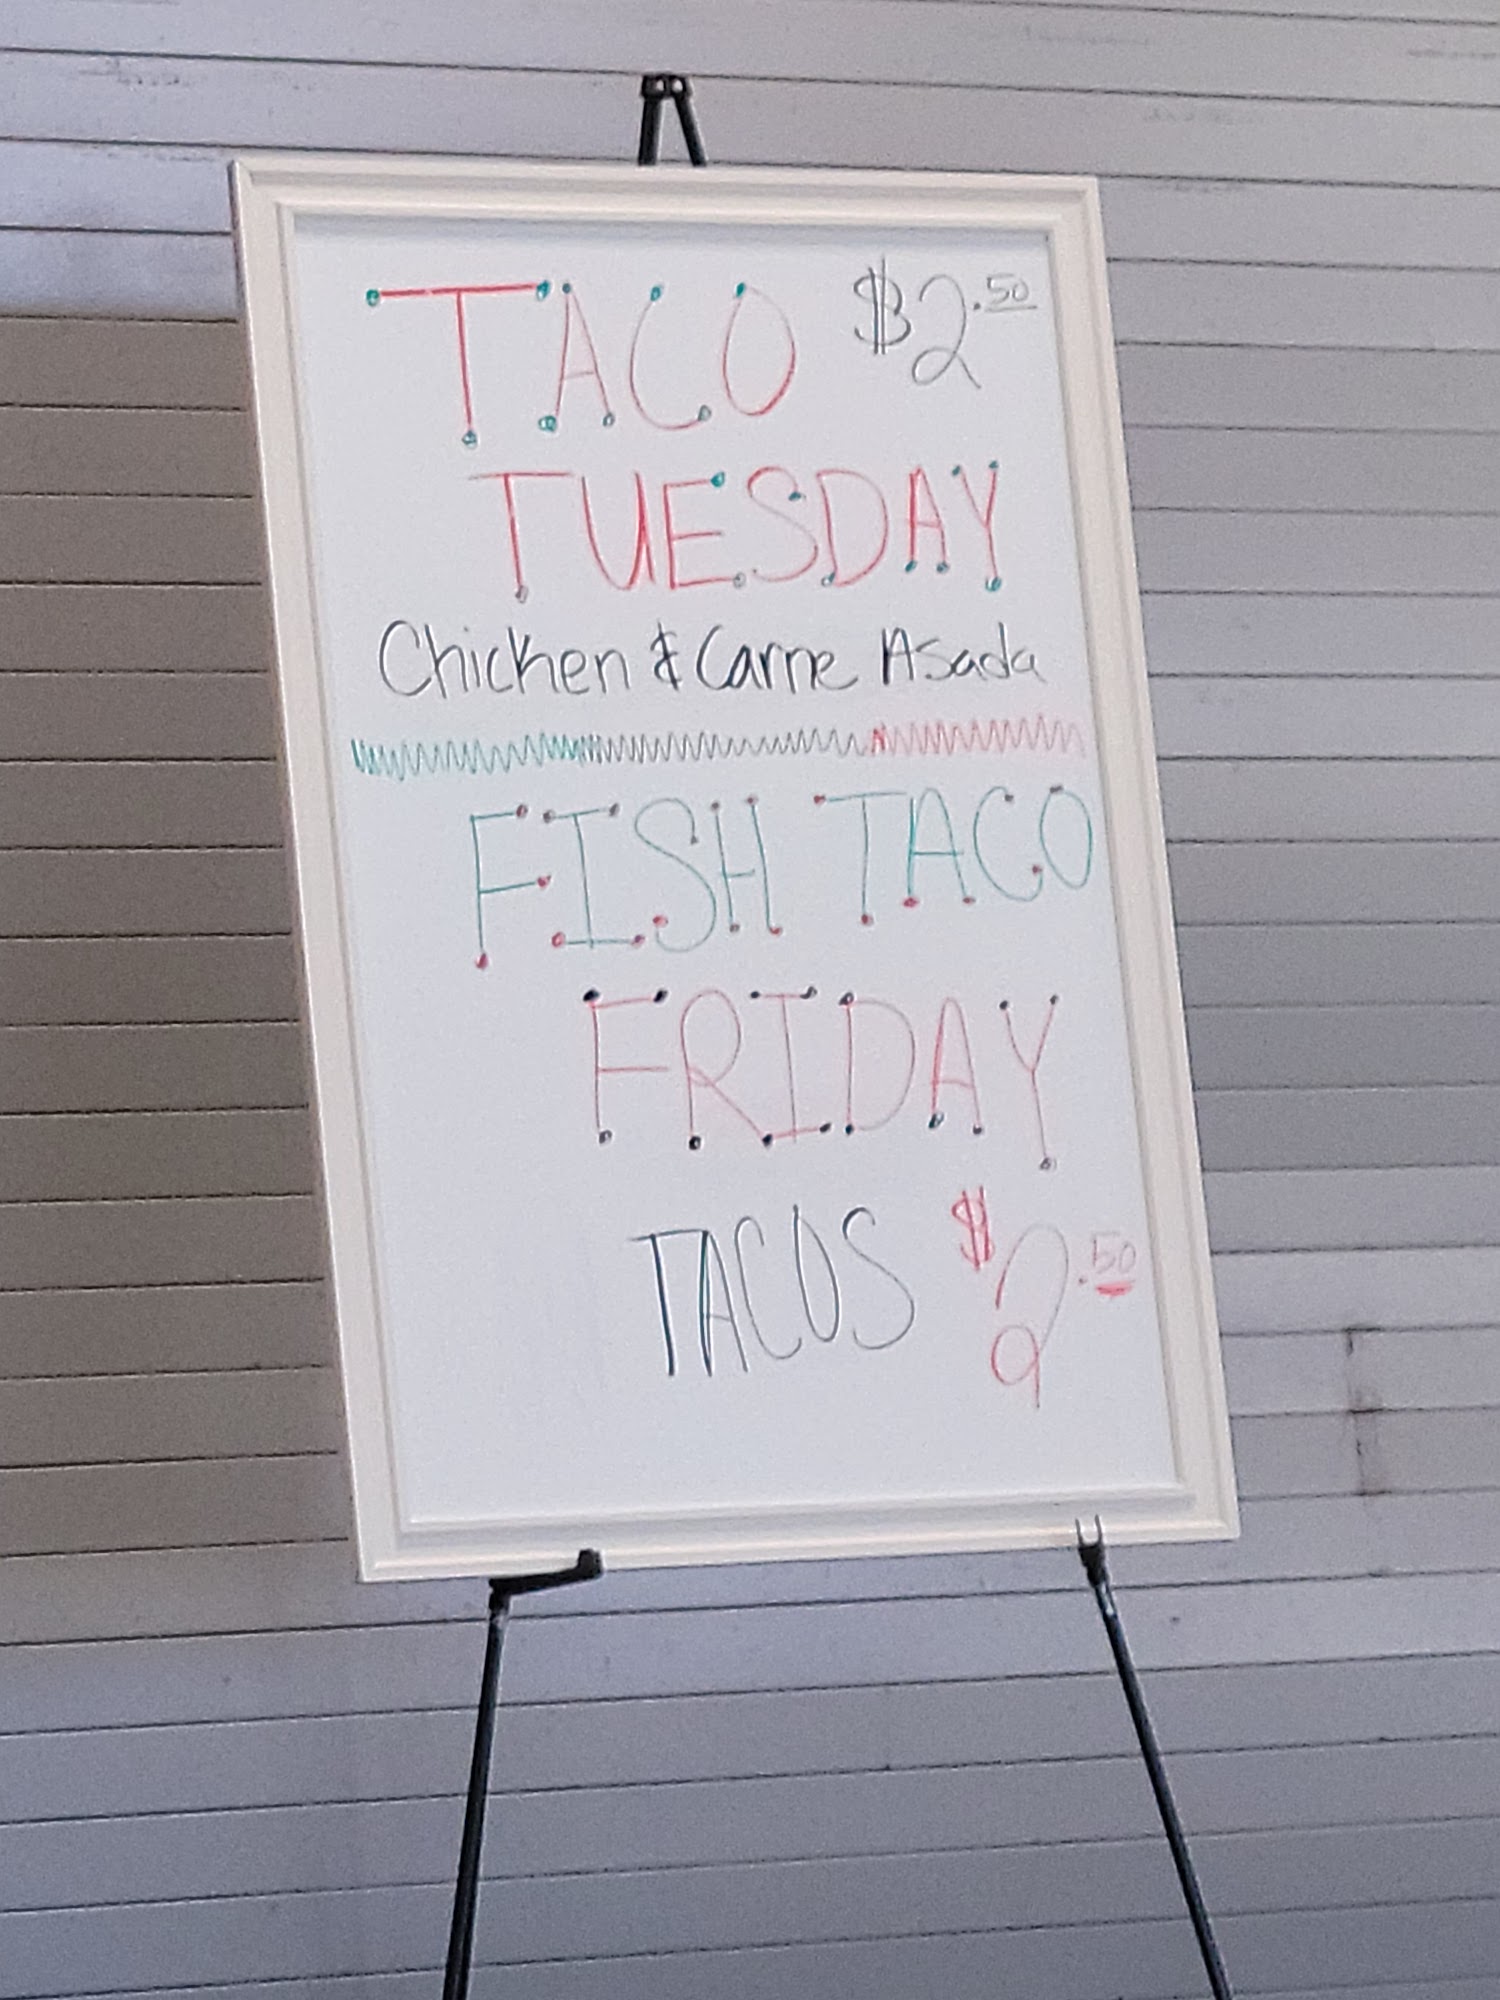 TACO $2.50
TUESDAY
Chicken & Carne Asada
FISH TACO
FRIDAY
TACOS $2.50